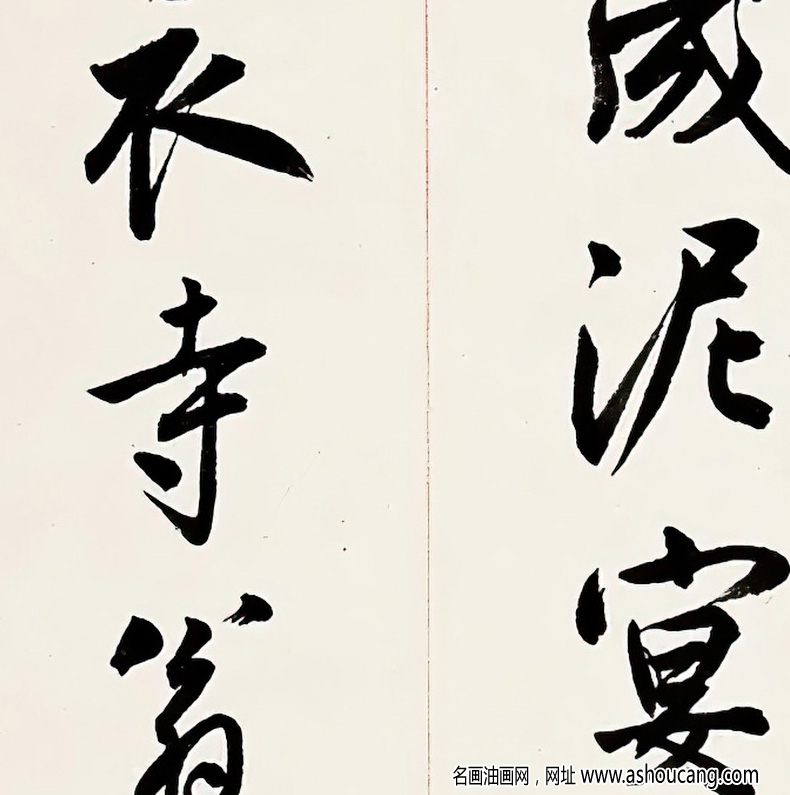 泥宴
不寺翁
名画油画网，网址 www.ashoucang.com